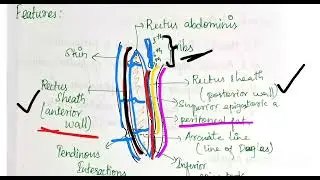 Features:
Rectus abdominis
5th
6th
7th
ribs
Skin
Rectus Sheath
(anterior wall)
Tendinous
Intersections
Rectus sheath
(posterior wall)
Superior epigastric a
peritoneal fat
Arcuate line
(line of Douglas)
Inferior